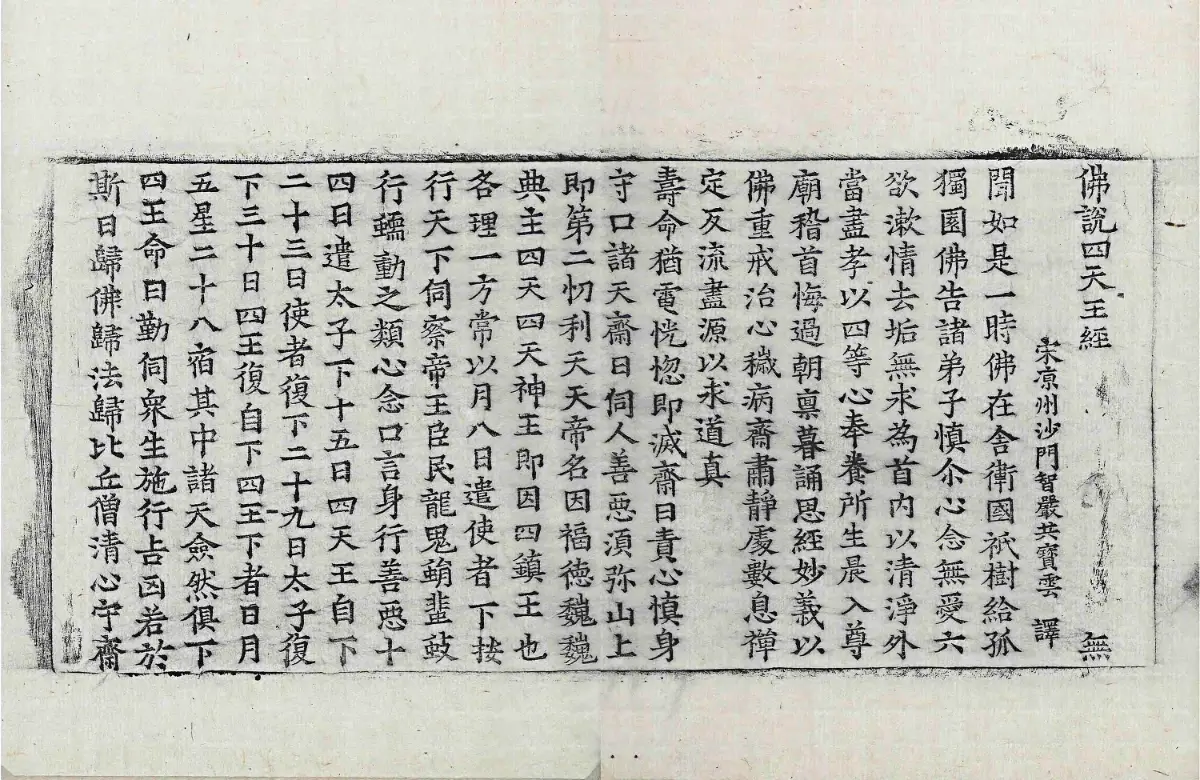 佛說四天王經 無
宋凉州沙門智嚴共寶雲 譯
聞如是一時佛在舍衛國祇樹給孤
獨園佛告諸弟子慎尒心念無愛六
欲漱情去垢無求為首內以清淨外
當盡孝以四等心奉養所生晨入尊
廟稽首悔過朝稟暮誦思經妙義以
佛重戒治心穢病齋肅靜處數息禪
定反流盡源以求道真
壽命猶電恍惚即滅齋日責心慎身
守口諸天齋日伺人善惡湏弥山上
即第二忉利天天帝名因福德巍巍
典主四天四天神王即因四鎮王也
各理一方常以月八日遣使者下按
行天下伺察帝王臣民龍鬼蜎蜚蚑
行蠕動之類心念口言身行善惡十
四日遣太子下十五日四天王自下
二十三日使者復下二十九日太子復
下三十日四王復自下四王下者日月
五星二十八宿其中諸天僉然俱下
四王命曰勤伺衆生施行吉凶若於
斯日歸佛歸法歸比丘僧清心守齋